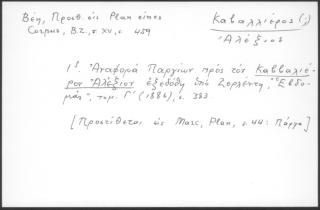 Βέη, Προσθ. εἰς Plan eines
Corpus, B.Z., τ. XV, σ. 459
Καβαλλιέρος (;)
Ἀλέξιος
1) Ἀναφορὰ Παργίων πρὸς τὸν Καββαλιέ-
ρον Ἀλέξιον ἐξεδόθη ὑπὸ Ζερλέντη, "Ἑβδο-
μάς", τομ. Γ' (1886), σ. 383.
[Προστίθεται εἰς Marc, Plan, σ. 44: Πάργα]